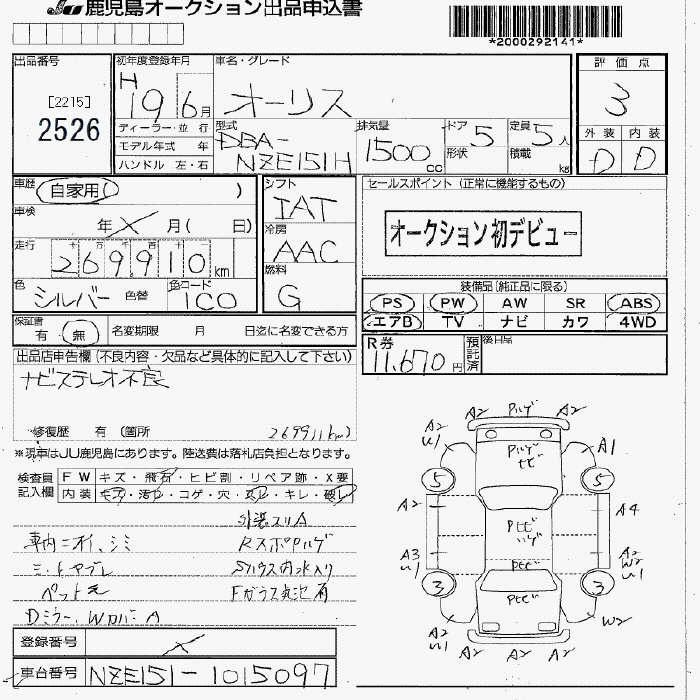 鹿児島オークション出品申込書
*2000292141*
出品番号
[2215]
2526
初年度登録年月
H 19 6月
車名・グレード
オーリス
評価点
3
外装 内装
D D
ディーラー・並行
モデル年式 年
ハンドル 左・右
型式
DBA-
NZE151H
排気量
1500cc
ドア 形状 5
定員 積載 5人 kg
車歴 自家用( )
車検 年 月( 日)
走行 269910km
色 シルバー 色替 色コード 1C0
シフト
IAT
冷房
AAC
燃料
G
セールスポイント(正常に機能するもの)
オークション初デビュー
装備品(純正品に限る)
PS PW AW SR ABS
エアB TV ナビ カワ 4WD
保証書 有 無 名変期限 月 日迄に名変できる方
R券 11,670円 預託済 後日品
出品店申告欄(不良内容・欠品など具体的に記入して下さい)
ナビステレオ不良
修復歴 有 (箇所
269911km)
※現車はJU鹿児島にあります。陸送費は落札店負担となります。
検査員記入欄 FW キズ・飛石・ヒビ割・リペア跡・X要
内装 キズ・汚れ・コゲ・穴・スレ・キレ・破レ
外装スリA
車内ニオイ、シミ
シートヤブレ
Dミラー、WカバーA
登録番号
車台番号 NZE151-1015097
A2 A2
A2 U1 A1
5 5
A2 A4
A3 U1 A2 W2 U1
3 3
A2 U1 W2
A2 A2 A2